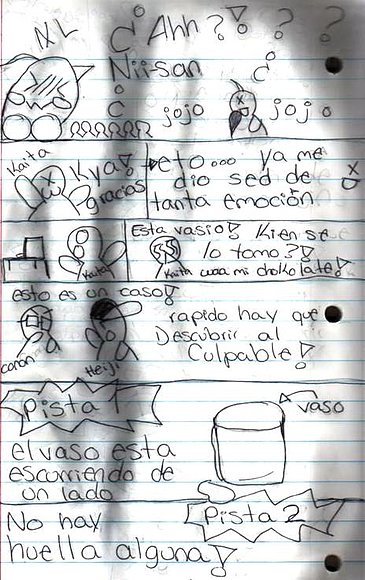 NL
¿Ahh?!??
Nii-san
¿
¿ jojo
¿ jojo
Kaita
Kya!
gracias
eto... ya me
dio sed de
tanta emoción
Kaita
Esta vasio! Kien se
lo tomo?!
Kaita
waa mi chokolate!
esto es un caso!
conan
Heiji
rapido hay que
Descubrir al
Culpable!
Pista 1
vaso
el vaso esta
escurriendo de
un lado
Pista 2
No hay
huella alguna!